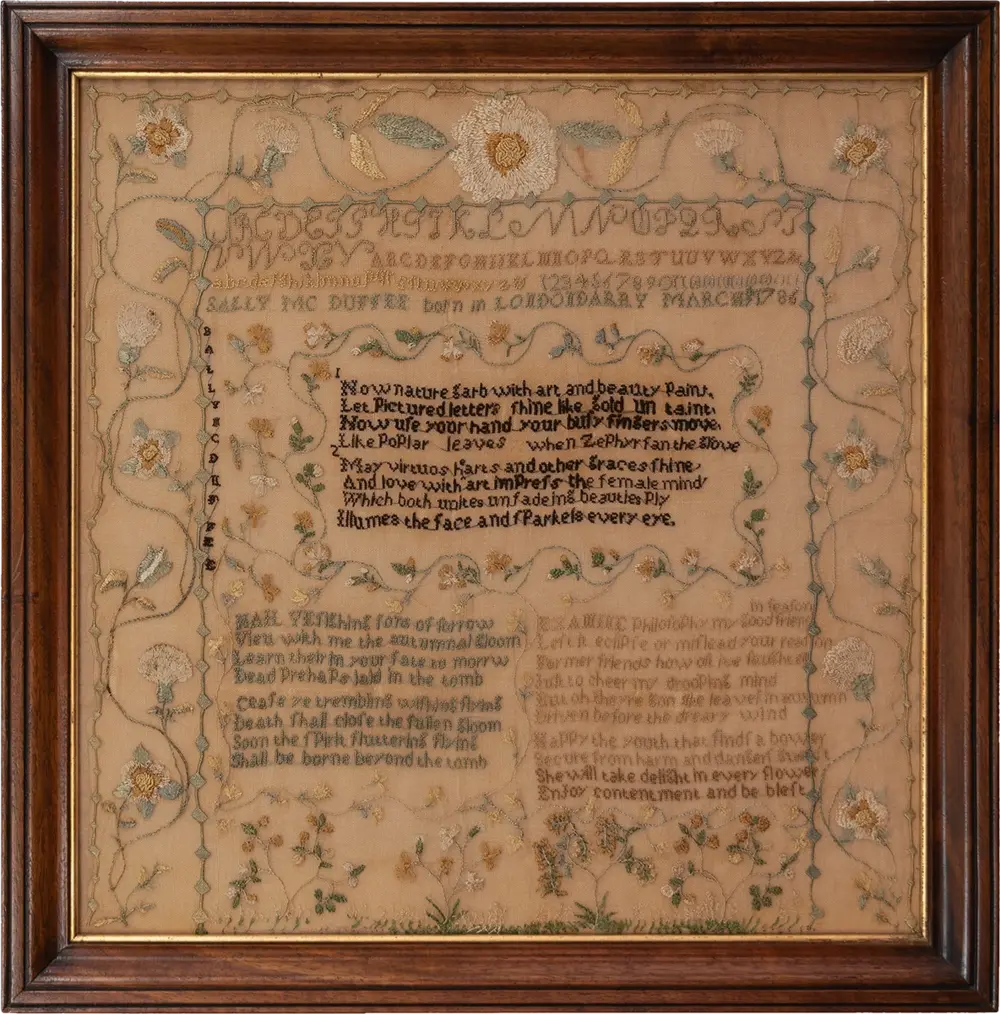 ABCDEFGHIJKLMNOPQRST
VWXYZ ABCDEFGHIJKLMNOPQRSTUVWXYZ&
SALLY MC DUFFEE born in LONDONDARRY MARCH 1786
BALLY
1
Now nature garb with art and beauty Paint.
Let Pictured letters ſhine like gold un taint.
Now uſe your hand your buſy fingers move.
Like Poplar leaves when Zephyr fan the Grove
2
May virtuos harts and other graces ſhine
And love with art impreſs the female mind
Which both unites unfadeing beauties Ply
Illumes the face and ſParkels every eye.
HAIL ſons of ſorrow
View with me the autumnal gloom
Learn their in your fate to morrw
Dead Prehaps laid in the tomb
Ceaſe ye trembling
Death ſhall cloſe the ſullen gloom
Soon the ſPirit fluttering flying
Shall be borne beyond the tomb
in ſeaſon
EXAMINE philoſoPhy my good friend
Leſt it eclipſe or miſlead your reaſon
Former friends how oft ive ſaught
Juſt to cheer my drooping mind
But oh the leaves in autumn
Driven before the dreary wind
Happy the youth that finds a bower
Secure from harm and danger
She will take delight in every flower
Enjoy contentment and be bleſt